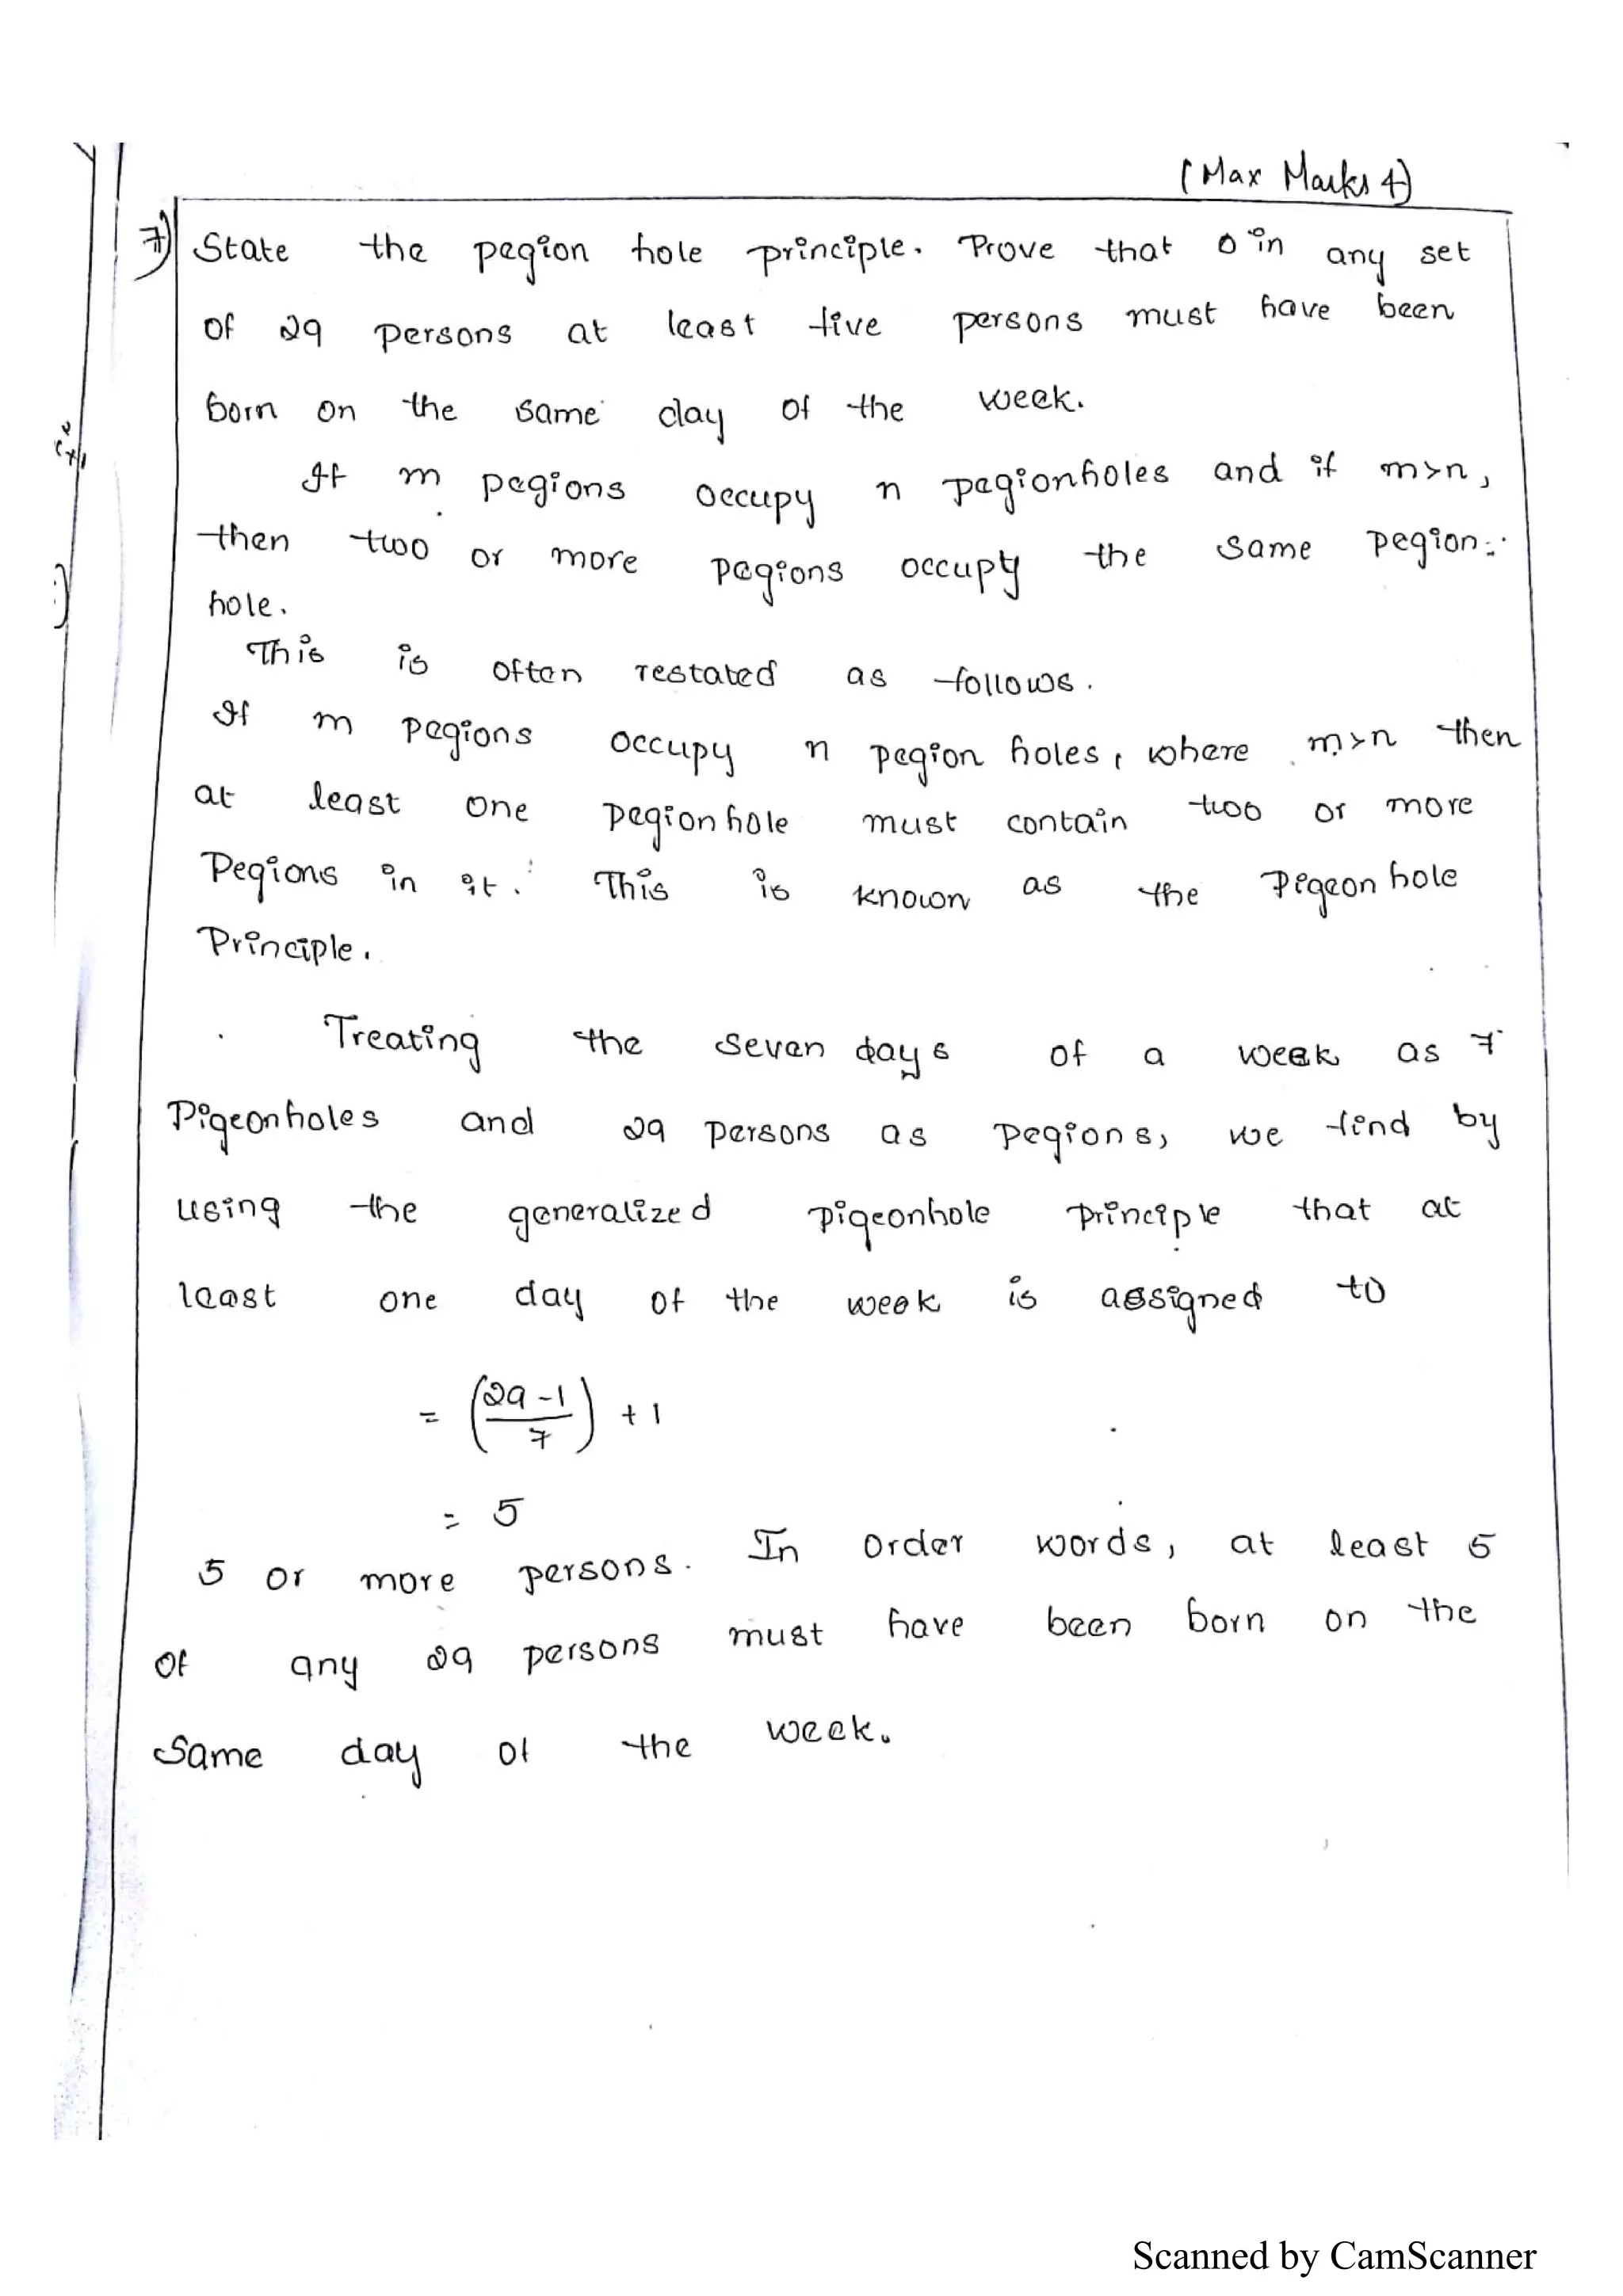 (Max Marks 4)
7) State the pegion hole principle. Prove that in any set
of 29 persons at least five persons must have been
born on the same day of the week.
If m pegions occupy n pegionholes and if m>n,
then two or more pegions occupy the same pegion-
hole.
This is often restated as follows.
If m pegions occupy n pegion holes, where m>n then
at least one pegionhole must contain two or more
Pegions in it. This is known as the Pigeon hole
Principle.
Treating the seven days of a week as 7
Pigeonholes and 29 persons as pegions, we find by
using the generalized pigeonhole principle that at
least one day of the week is assigned to
= (29-1/7) + 1
= 5
5 or more persons. In order words, at least 5
of any 29 persons must have been born on the
same day of the week.
Scanned by CamScanner